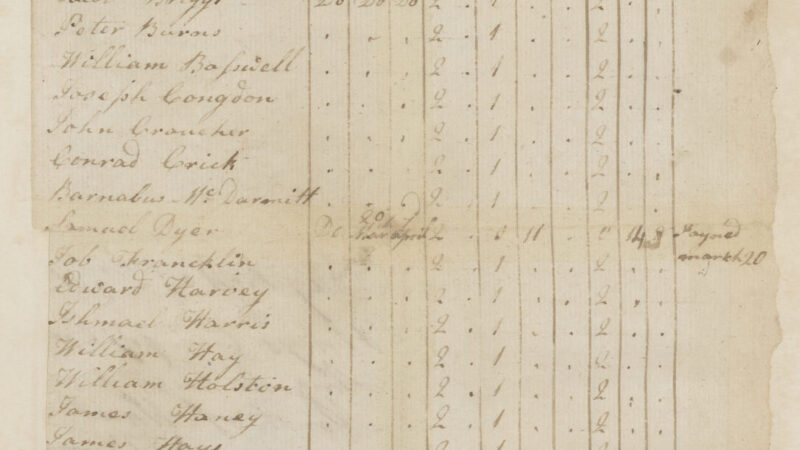 Briggs Do Do Do 2 . 1 . . 2 . .
Peter Burns . . . 2 . 1 . . 2 . .
William Baſwell . . . 2 . 1 . . 2 . .
Joseph Congdon . . . 2 . 1 . . 2 . .
John Croucher . . . 2 . 1 . . 2 . .
Conrad Crick . . . 2 . 1 . . 2 . .
Barnabus Mc Darmitt . . . 2 . 1 . . 2 . .
Samuel Dyer Do 20 April 2 . 11 . Joyned
march 20
Job Francklin . . . 2 . 1 . . 2 . .
Edward Harvey . . . 2 . 1 . . 2 . .
Ishmael Harris . . . 2 . 1 . . 2 . .
William Hay . . . 2 . 1 . . 2 . .
William Holston . . . 2 . 1 . . 2 . .
James Haney . . . 2 . 1 . . 2 . .
James Hays . . . 2 . 1 . . 2 . .